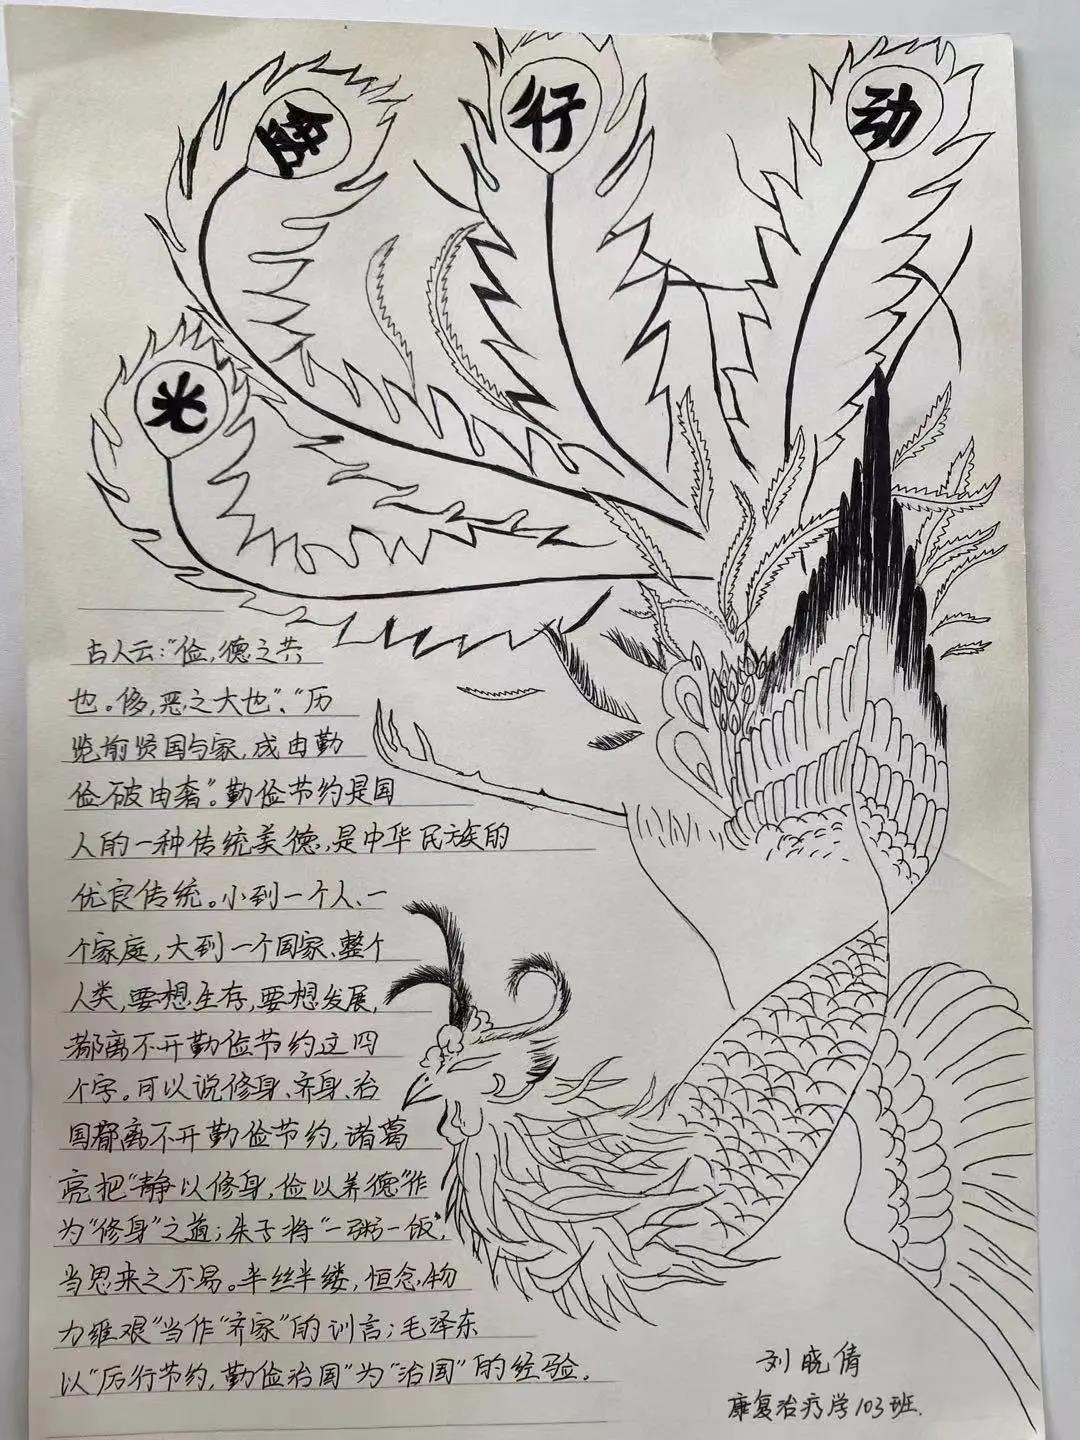 光
盘
行
动
古人云:“俭,德之共
也。侈,恶之大也”、“历
览前贤国与家,成由勤
俭破由奢”。勤俭节约是国
人的一种传统美德,是中华民族的
优良传统。小到一个人、一
个家庭,大到一个国家、整个
人类,要想生存,要想发展,
都离不开勤俭节约这四
个字。可以说修身、齐身、治
国都离不开勤俭节约,诸葛
亮把“静以修身,俭以养德”作
为“修身”之道;朱子将“一粥一饭,
当思来之不易。半丝半缕,恒念物
力维艰”当作“齐家”的训言;毛泽东
以“厉行节约,勤俭治国”为“治国”的经验。
刘晓倩
康复治疗学103班.